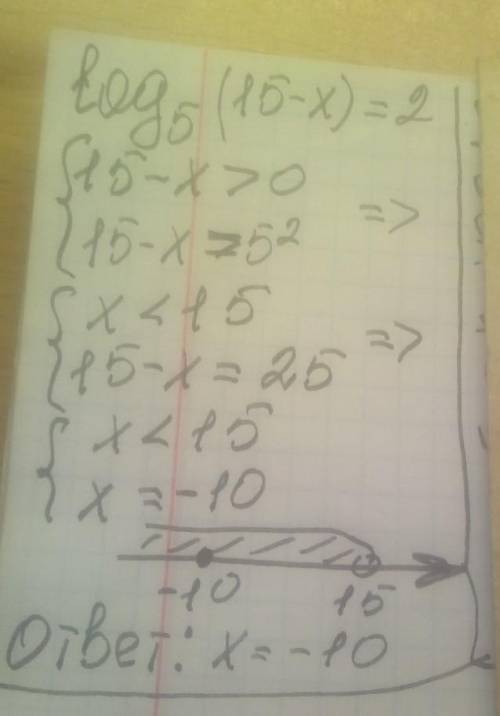 log₅(15-x)=2
{15-x>0
{15-x=5² =>
{x<15
{15-x=25 =>
{x<15
{x=-10
-10 15
Ответ: x=-10